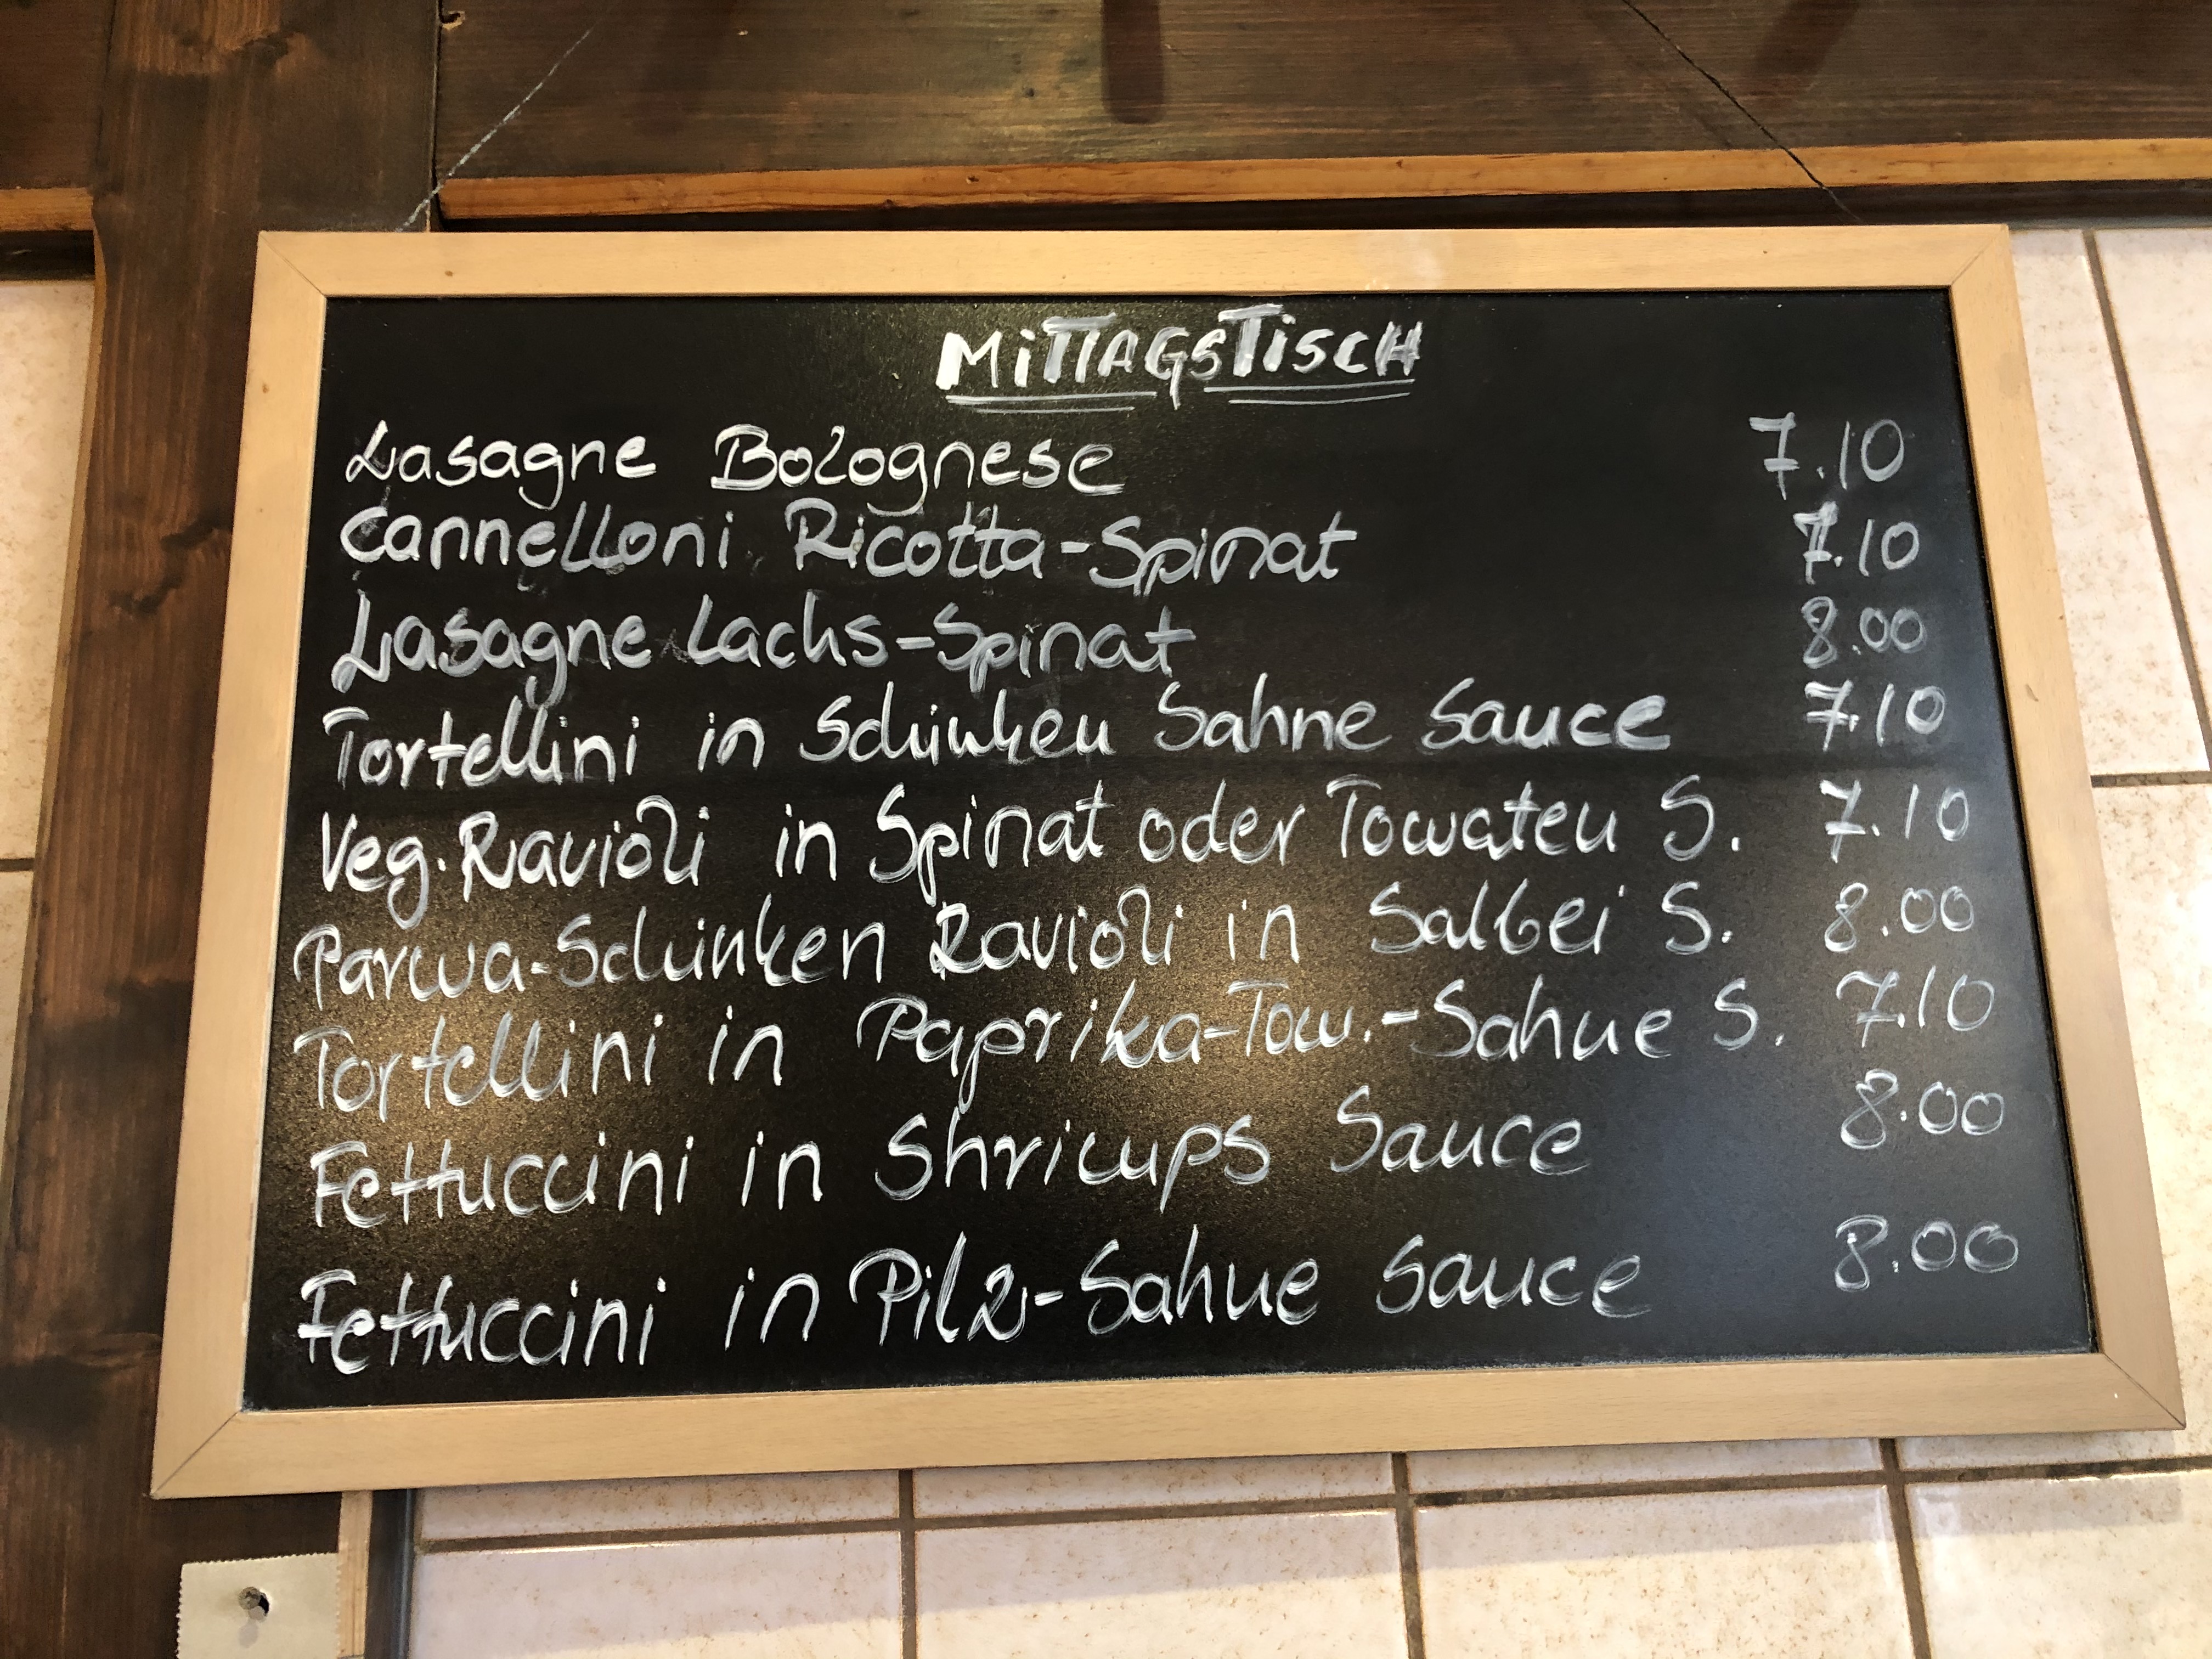 MiTTAGSTiSCH
Lasagne Bolognese 7.10
Cannelloni Ricotta-Spinat 7.10
Lasagne Lachs-Spinat 8.00
Tortellini in Schinken Sahne Sauce 7.10
Veg. Ravioli in Spinat oder Tomaten S. 7.10
Parma-Schinken Ravioli in Salbei S. 8.00
Tortellini in Paprika-Tom.-Sahne S. 7.10
Fettuccini in Shrimps Sauce 8.00
Fettuccini in Pilz-Sahne Sauce 8.00